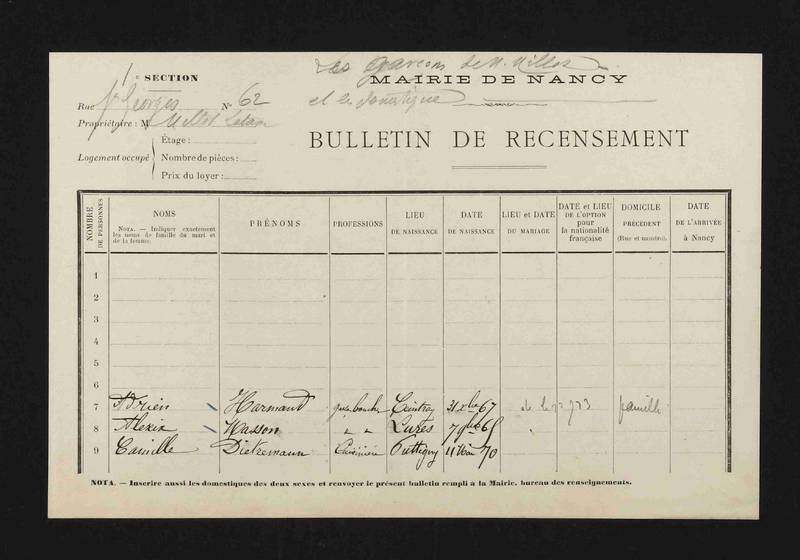 1e SECTION
Les garçons de M. Millot
MAIRIE DE NANCY
Rue St Georges No 62
et le domestique
Propriétaire : M Millot
BULLETIN DE RECENSEMENT
Logement occupé
Étage :
Nombre de pièces :
Prix du loyer :
NOMBRE DE PERSONNES
NOMS
NOTA. — Indiquer exactement les noms de famille du mari et de la femme.
PRÉNOMS
PROFESSIONS
LIEU DE NAISSANCE
DATE DE NAISSANCE
LIEU et DATE DU MARIAGE
DATE et LIEU DE L'OPTION pour la nationalité française
DOMICILE PRÉCÉDENT (Rue et numéro).
DATE DE L'ARRIVÉE à Nancy
1
2
3
4
5
6
7 Adrien Harmand boucher Ceintrey 67 famille
8 Alexis Masson " "
9 Camille Dietzemann Cuisinière Puttigny 11 70
NOTA. — Inscrire aussi les domestiques des deux sexes et renvoyer le présent bulletin rempli à la Mairie, bureau des renseignements.